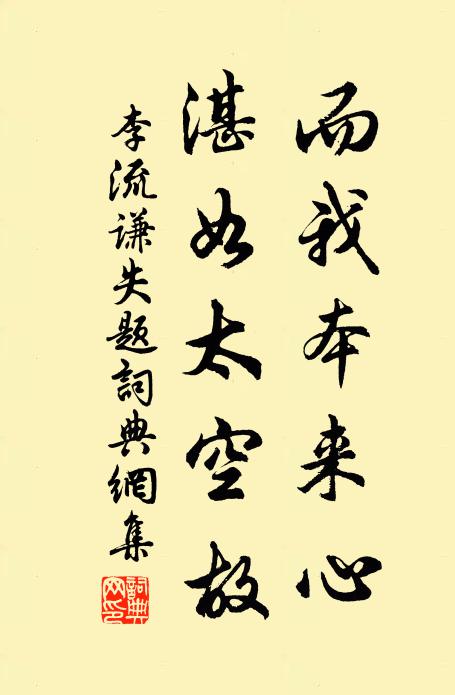 而我本来心
湛如太空故
李流谦失题詞典網集
詞典
网印